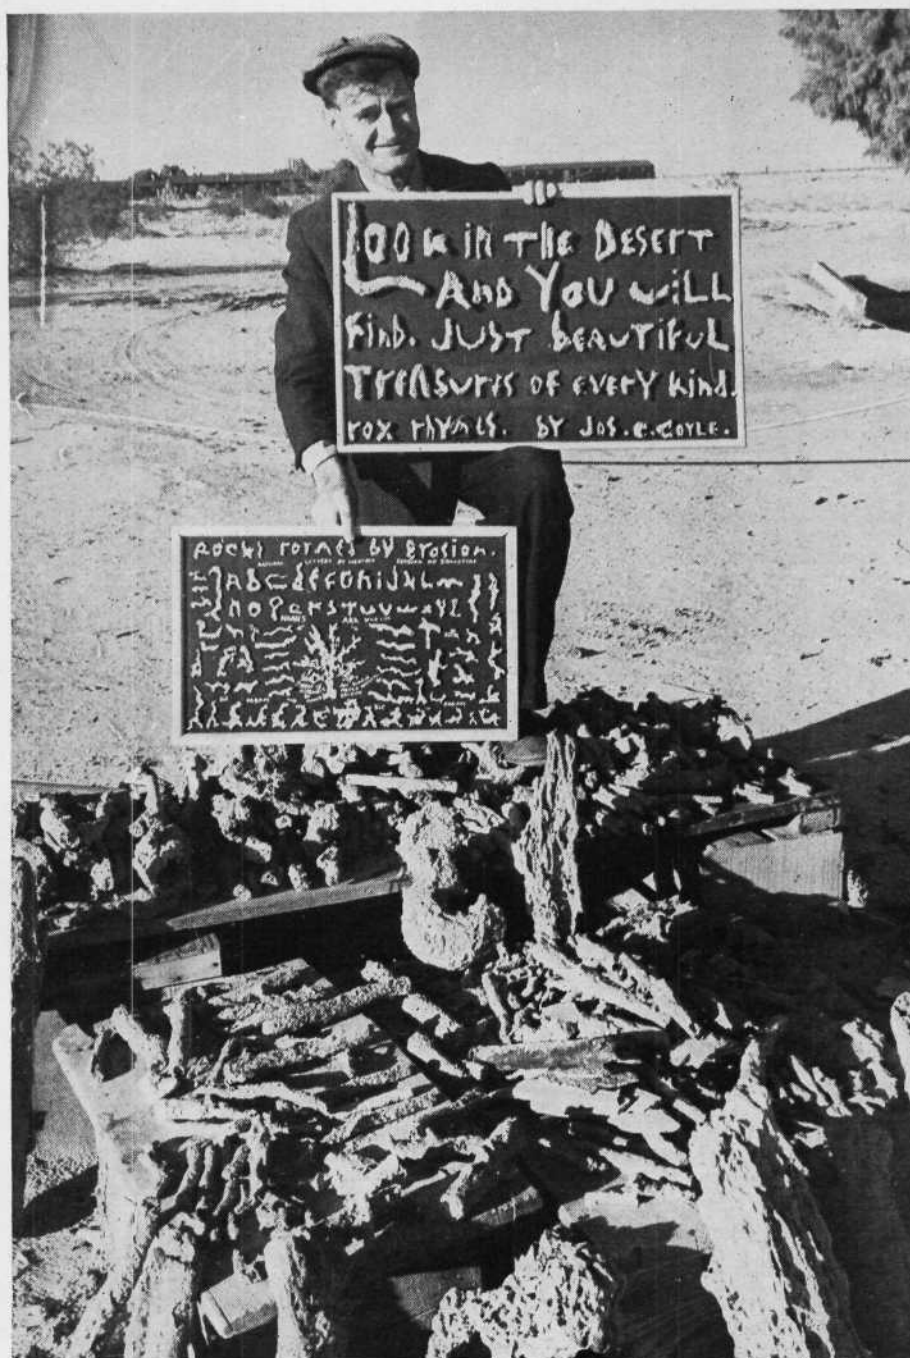 LOOK in THE DESERT
AND YOU WILL
Find. JUST bEAUTIFUL
TREASURES OF EVERY kind.
rox rhymes. BY JOS.C.COYLE.
ROCKS FORMED BY EROSION.
ABCDEFGHIJKLM
NOPQRSTUVWXYZ